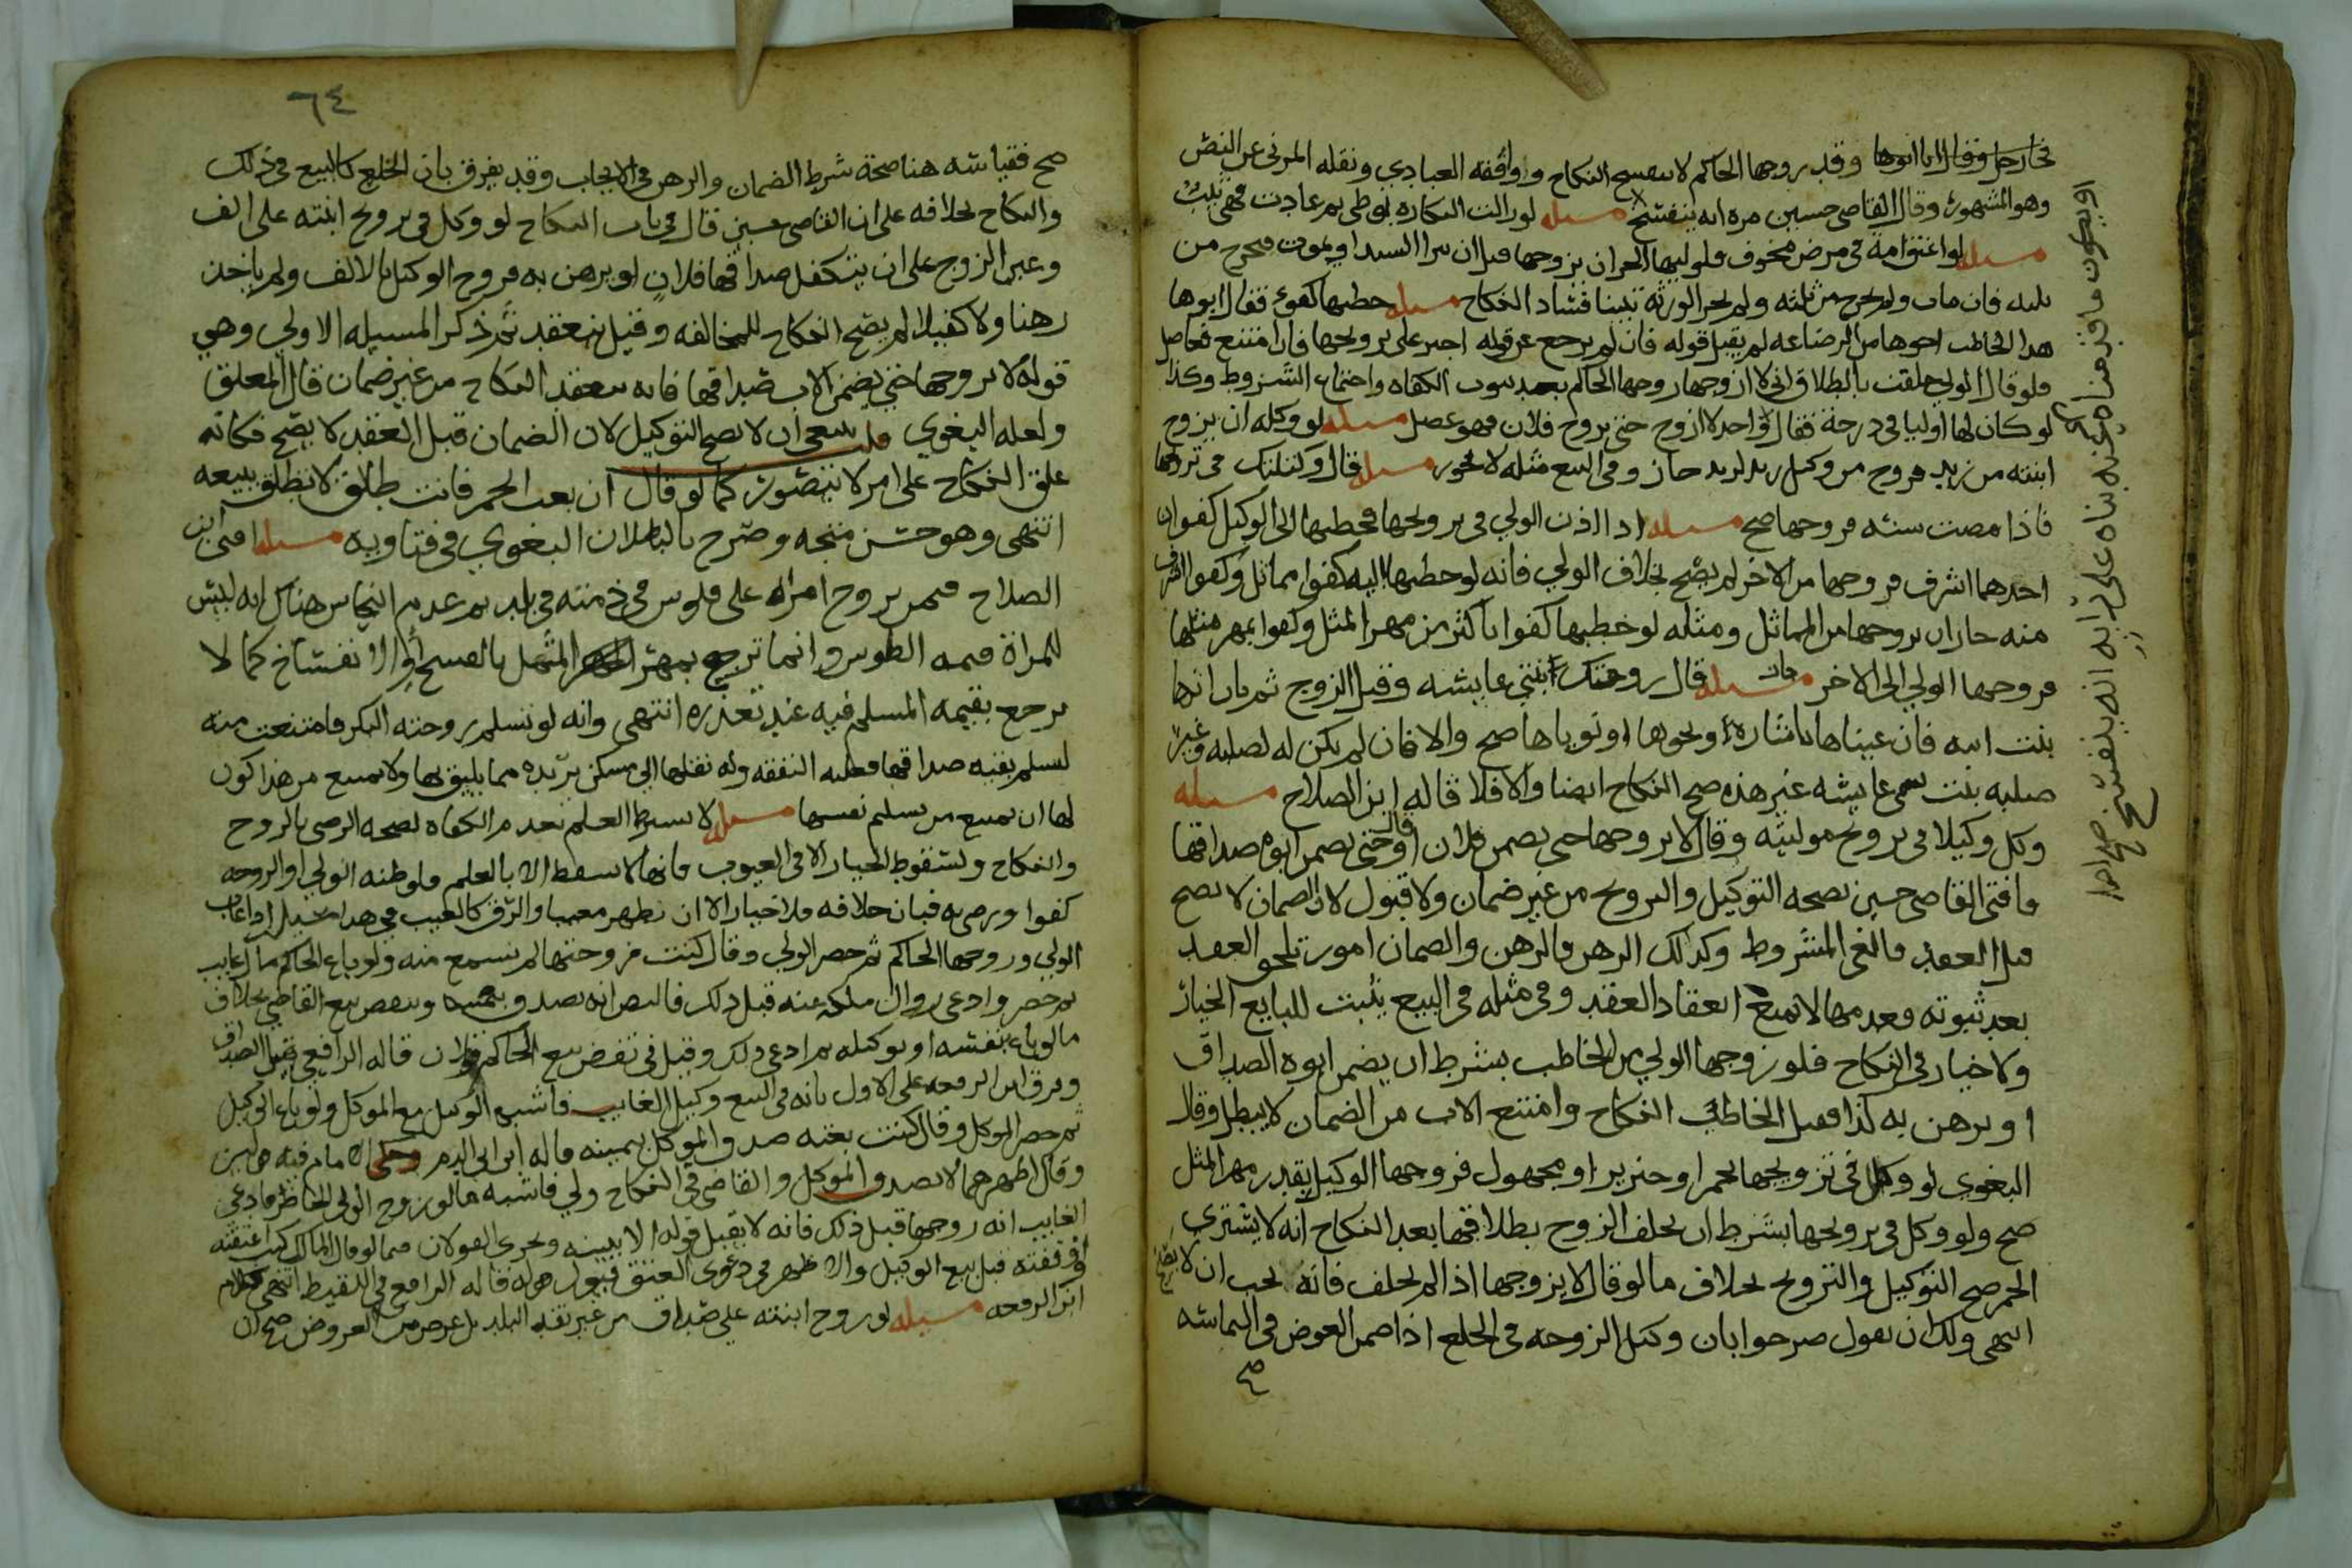 نجا رجل وقال انا ابوها وقد زوجها الحاكم لا ينفسخ النكاح ووافقه العبادي ونقله المزني عن النص
وهو المشهور وقال القاضي حسين مرة انه ينفسخ مسله لو زالت البكارة بوطي ثم عادت فهي ثيب
مسله لو اعتق امة في مرض مخوف فلوليها الحر ان يزوجها قبل ان يبرا السيد او يموت فتخرج من
ثلثه فان مات ولم تخرج من ثلثه ولم يجز الورثة تبينا فساد النكاح مسله خطبها كفوء فقال ابوها
هذا الخاطب اخوها من الرضاعه لم يقبل قوله فان لم يرجع عن قوله اجبر على تزويجها فان امتنع فعاضل
فلو قال الولي حلفت بالطلاق اني لا ازوجها زوجها الحاكم بعد ثبوت الكفاه واجتماع الشروط وكذا
لو كان لها اوليا في درجة فقال واحد لا ازوج حتى يزوج فلان فهو عضل مسله لو وكله ان يزوج
ابنته من زيد فزوج من وكيل زيد لزيد جاز وفي البيع مثله لا يجوز مسله قال وكلتك في تزويجها
فاذا مضت سنة فزوجها صح مسله اذا اذن الولي في تزويجها فخطبها الى الوكيل كفوان
احدهما اشرف فزوجها من الاخر لم يصح بخلاف الولي فانه لو خطبها اليه كفوا مماثل وكفوا اشرف
منه جاز ان يزوجها من المماثل ومثله لو خطبها كفوا باكثر من مهر المثل وكفوا بمهر مثلها
فزوجها الولي الى الاخر جاز مسله قال زوجتك ابنتي عايشه وقبل الزوج ثم بان انها
بنت ابنه فان عيناها باشارة او نحوها او نوياها صح والا فان لم يكن له لصلبه وغير
صلبه بنت تسمى عايشه غير هذه صح النكاح ايضا والا فلا قاله ابن الصلاح مسله
وكل وكيلا في تزويج موليته وقال لا تزوجها حتى يضمن فلان او قال حتى يضمن ابوه صداقها
فافتى القاضي حسين بصحه التوكيل والتزويج من غير ضمان ولا قبول لان الضمان لا يصح
قبل العقد فالغى المشروط وكذلك الرهن فالرهن والضمان امور تلحق العقد
بعد ثبوته فعدمها لا يمنع انعقاد العقد وفي مثله في البيع يثبت للبايع الخيار
ولا خيار في النكاح فلو زوجها الولي من الخاطب بشرط ان يضمن ابوه الصداق
او يرهن به كذا فقبل الخاطب النكاح وامتنع الاب من الضمان لا يبطل وقال
البغوي لو وكل في تزويجها بخمر او خنزير او مجهول فزوجها الوكيل بقدر مهر المثل
صح ولو وكل في تزويجها بشرط ان يحلف الزوج بطلاقها بعد النكاح انه لا يشتري
الخمر صح التوكيل والتزويج بخلاف ما لو قال لا يزوجها اذا لم يحلف فانه يجب ان لا يصح
انتهى ولك ان تقول صرحوا بان وكيل الزوجه في الخلع اذا ضمن العوض في المباشه
صح
او يكون ما قدمناه عنه بناه على رايه انه ينفسخ
٦٤
صح فقياسه هنا صحة شرط الضمان والرهن في الايجاب وقد يفرق بان الخلع كالبيع في ذلك
والنكاح بخلافه على ان القاضي حسين قال في باب النكاح لو وكل في تزويج ابنته على الف
وعين الزوج على ان يتكفل صداقها فلان او يرهن به فزوج الوكيل بالالف ولم ياخذ
رهنا ولا كفيلا لم يصح النكاح للمخالفه وقيل ينعقد ثم ذكر المسيله الاولي وهي
قوله لا تزوجها حتى يضمن الاب صداقها فانه ينعقد النكاح من غير ضمان قال المعلق
ولعله البغوي قلت ينبغي ان لا يصح التوكيل لان الضمان قبل العقد لا يصح فكانه
علق النكاح على امر لا يتصور كما لو قال ان بعت الخمر فانت طالق لا تطلق ببيعه
انتهى وهو حسن متجه وصرح بالبطلان البغوي في فتاويه مسله افتى ابن
الصلاح فيمن تزوج امراة على فلوس في ذمته في بلد ثم عدم النحاس هناك انه ليس
للمراة قيمه الفلوس وانما ترجع بمهر المثل بالفسخ او الانفساخ كما لا
يرجع بقيمه المسلم فيه عند تعذره انتهى وانه لو تسلم زوجته البكر فامتنعت منه
لتسلم بقيه صداقها فعليه النفقه وله نقلها الى مسكن يريده مما يليق بها ولا يمنع من هذا كون
لها ان تمنع من تسليم نفسها مسله لا يشترط العلم بعدم الكفاه لصحه الرضى بالزوج
والنكاح ولسقوط الخيار الا في العيوب فانها لا تسقط الا بالعلم فلو ظنه الولي او الزوجه
كفوا ورضي به فبان خلافه فلا خيار الا ان يظهر معيبا والرق كالعيب في هذا مسله اذا غاب
الولي وزوجها الحاكم ثم حضر الولي وقال كنت زوجتها لم يسمع منه ولو باع الحاكم مال غايب
ثم حضر وادعى زوال ملكه عنه قبل ذلك فالنص انه يصدق بيمينه وينقض بيع القاضي بخلاف
ما لو باع بنفسه او بوكيله ثم ادعى ذلك وقيل في نقض بيع الحاكم قولان قاله الرافعي قبيل الصداق
وفرق ابن الرفعه على الاول بانه في البيع وكيل الغايب فاشبه الوكيل مع الموكل ولو باع الوكيل
ثم حضر الموكل وقال كنت بعته صدق الموكل بيمينه قاله ابن ابي الدم وحكى الامام فيه قولين
وقال اظهرهما لا يصدق الموكل والقاضي في النكاح ولي فاشبه ما لو زوج الولي الحاضر فادعى
الغايب انه زوجها قبل ذلك فانه لا يقبل قوله الا ببينه ويجري القولان فيما لو قال المالك كنت اعتقته
او وقفته قبل بيع الوكيل والاظهر في دعوى العتق قبول قوله قاله الرافعي في اللقيط انتهى كلام
ابن الرفعه مسيله لو زوج ابنته على صداق من غير نقد البلد بل عرض من العروض صح ان